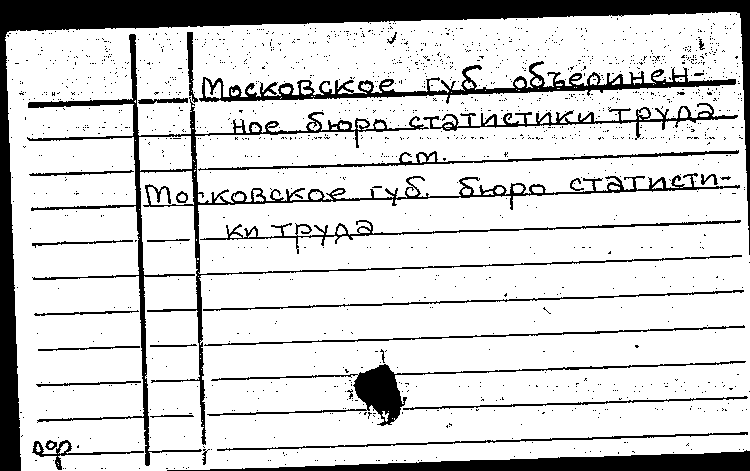 Московское губ. объеринен-
ное бюро статистики труда
см.
Московское губ. бюро статисти-
ки труда